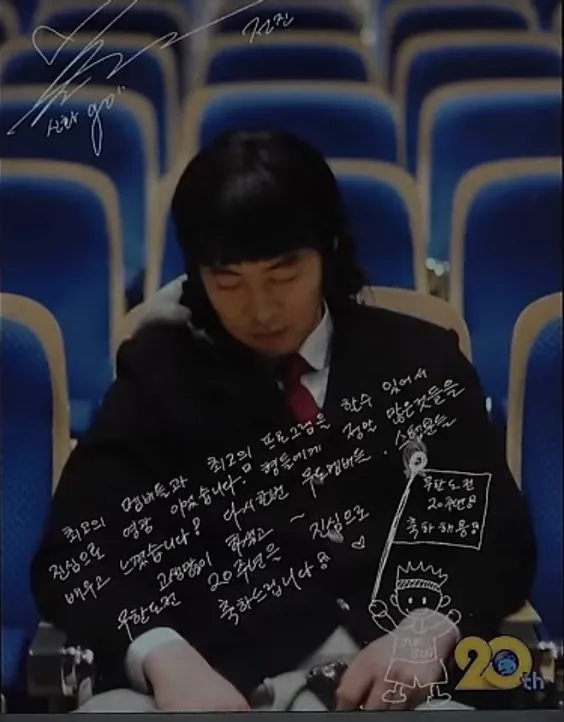 전진
신화 go!!
최고의 멤버들과 최고의 프로그램을 할수 있어서
진심으로 영광 이었습니다. 형들에게 정말 많은것들을
배우고 느꼈습니다! 다시한번 무도멤버들. 스텝분들
고생많이 하셨고 ~ 진심으로
무한도전 20주년을
축하드립니다
무한도전
20주년
축하해용
20th